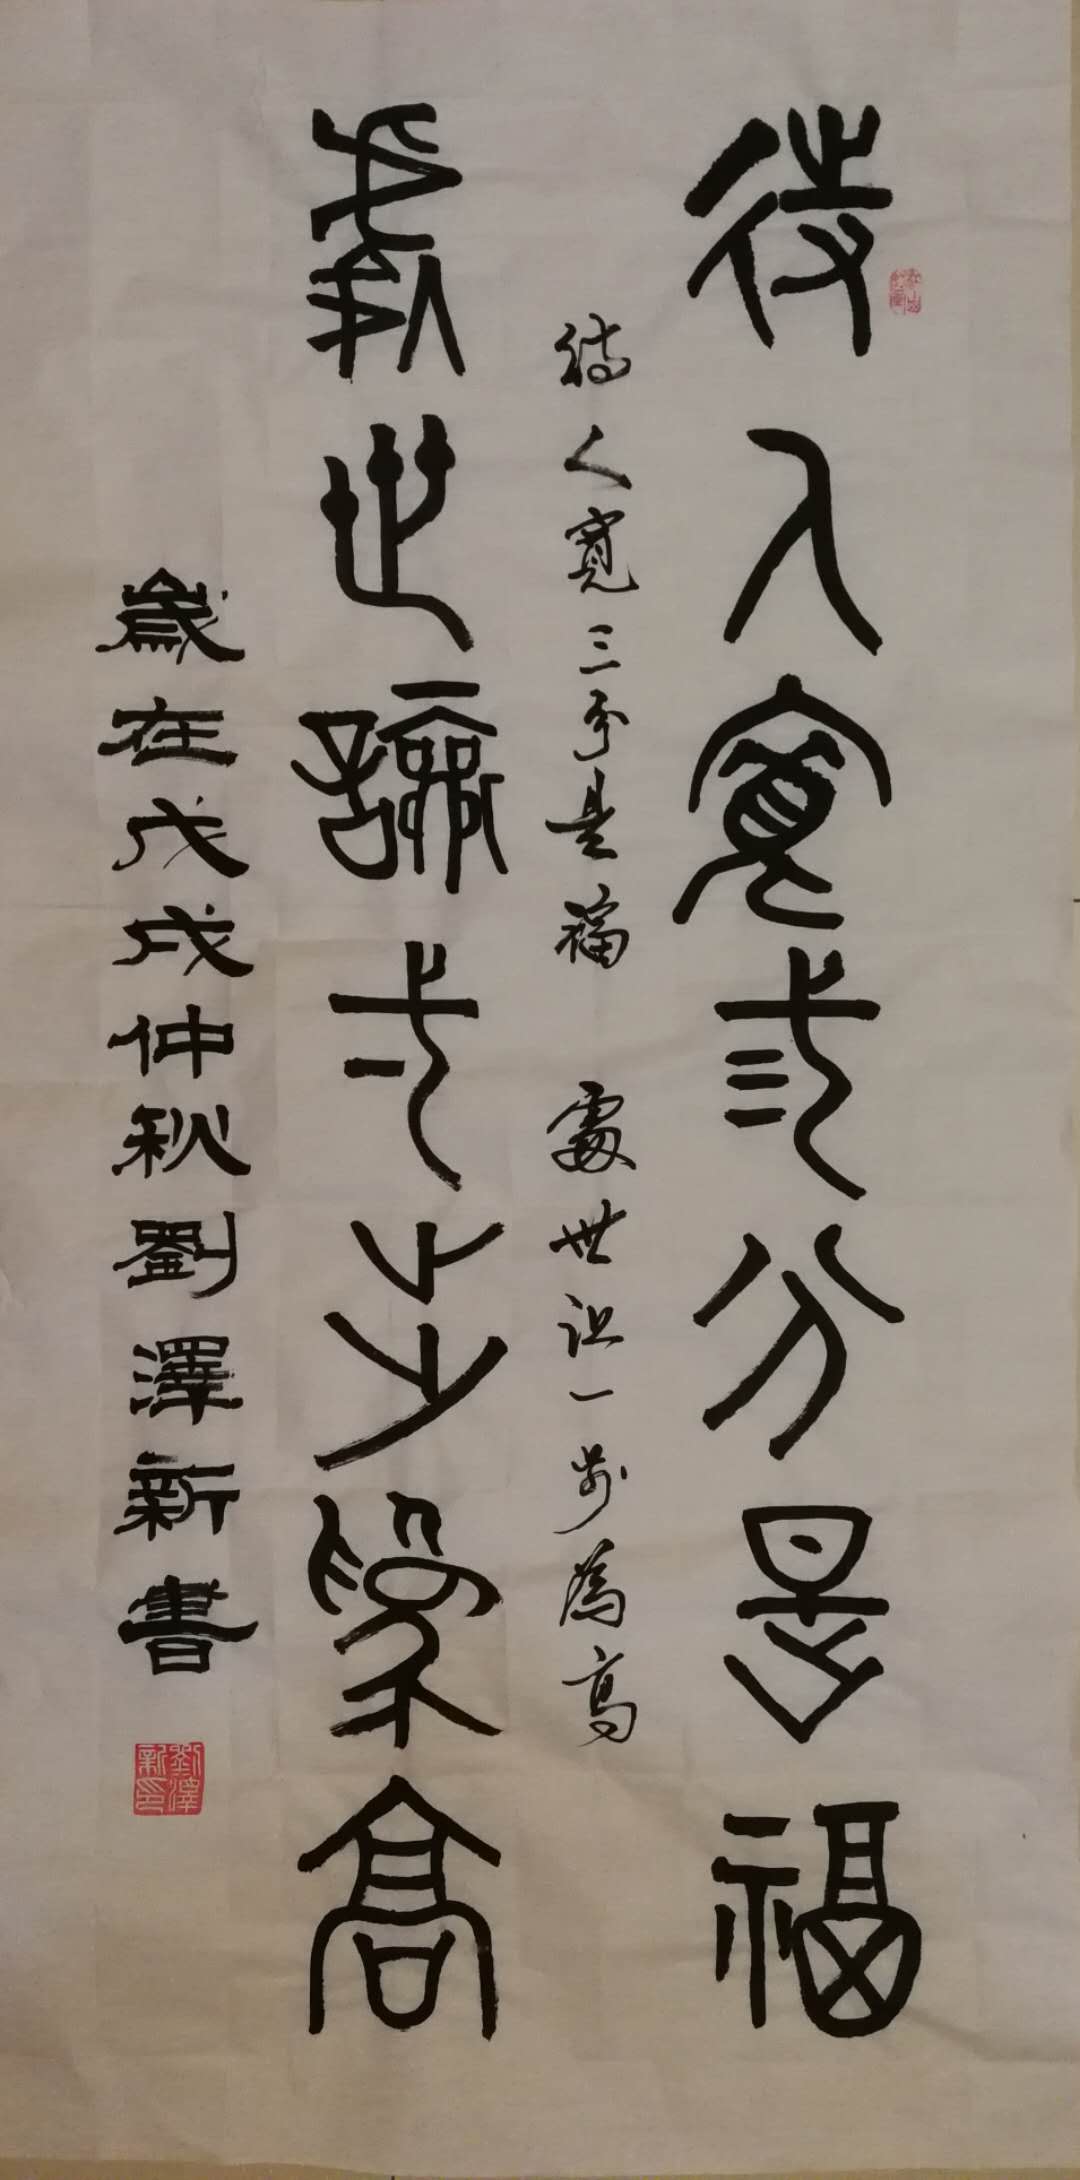 待人寬弎分是福
待人寬三分是福 處世让一步為高
處世讓弌步為高
歲在戊戌仲秋劉澤新書
劉澤新印